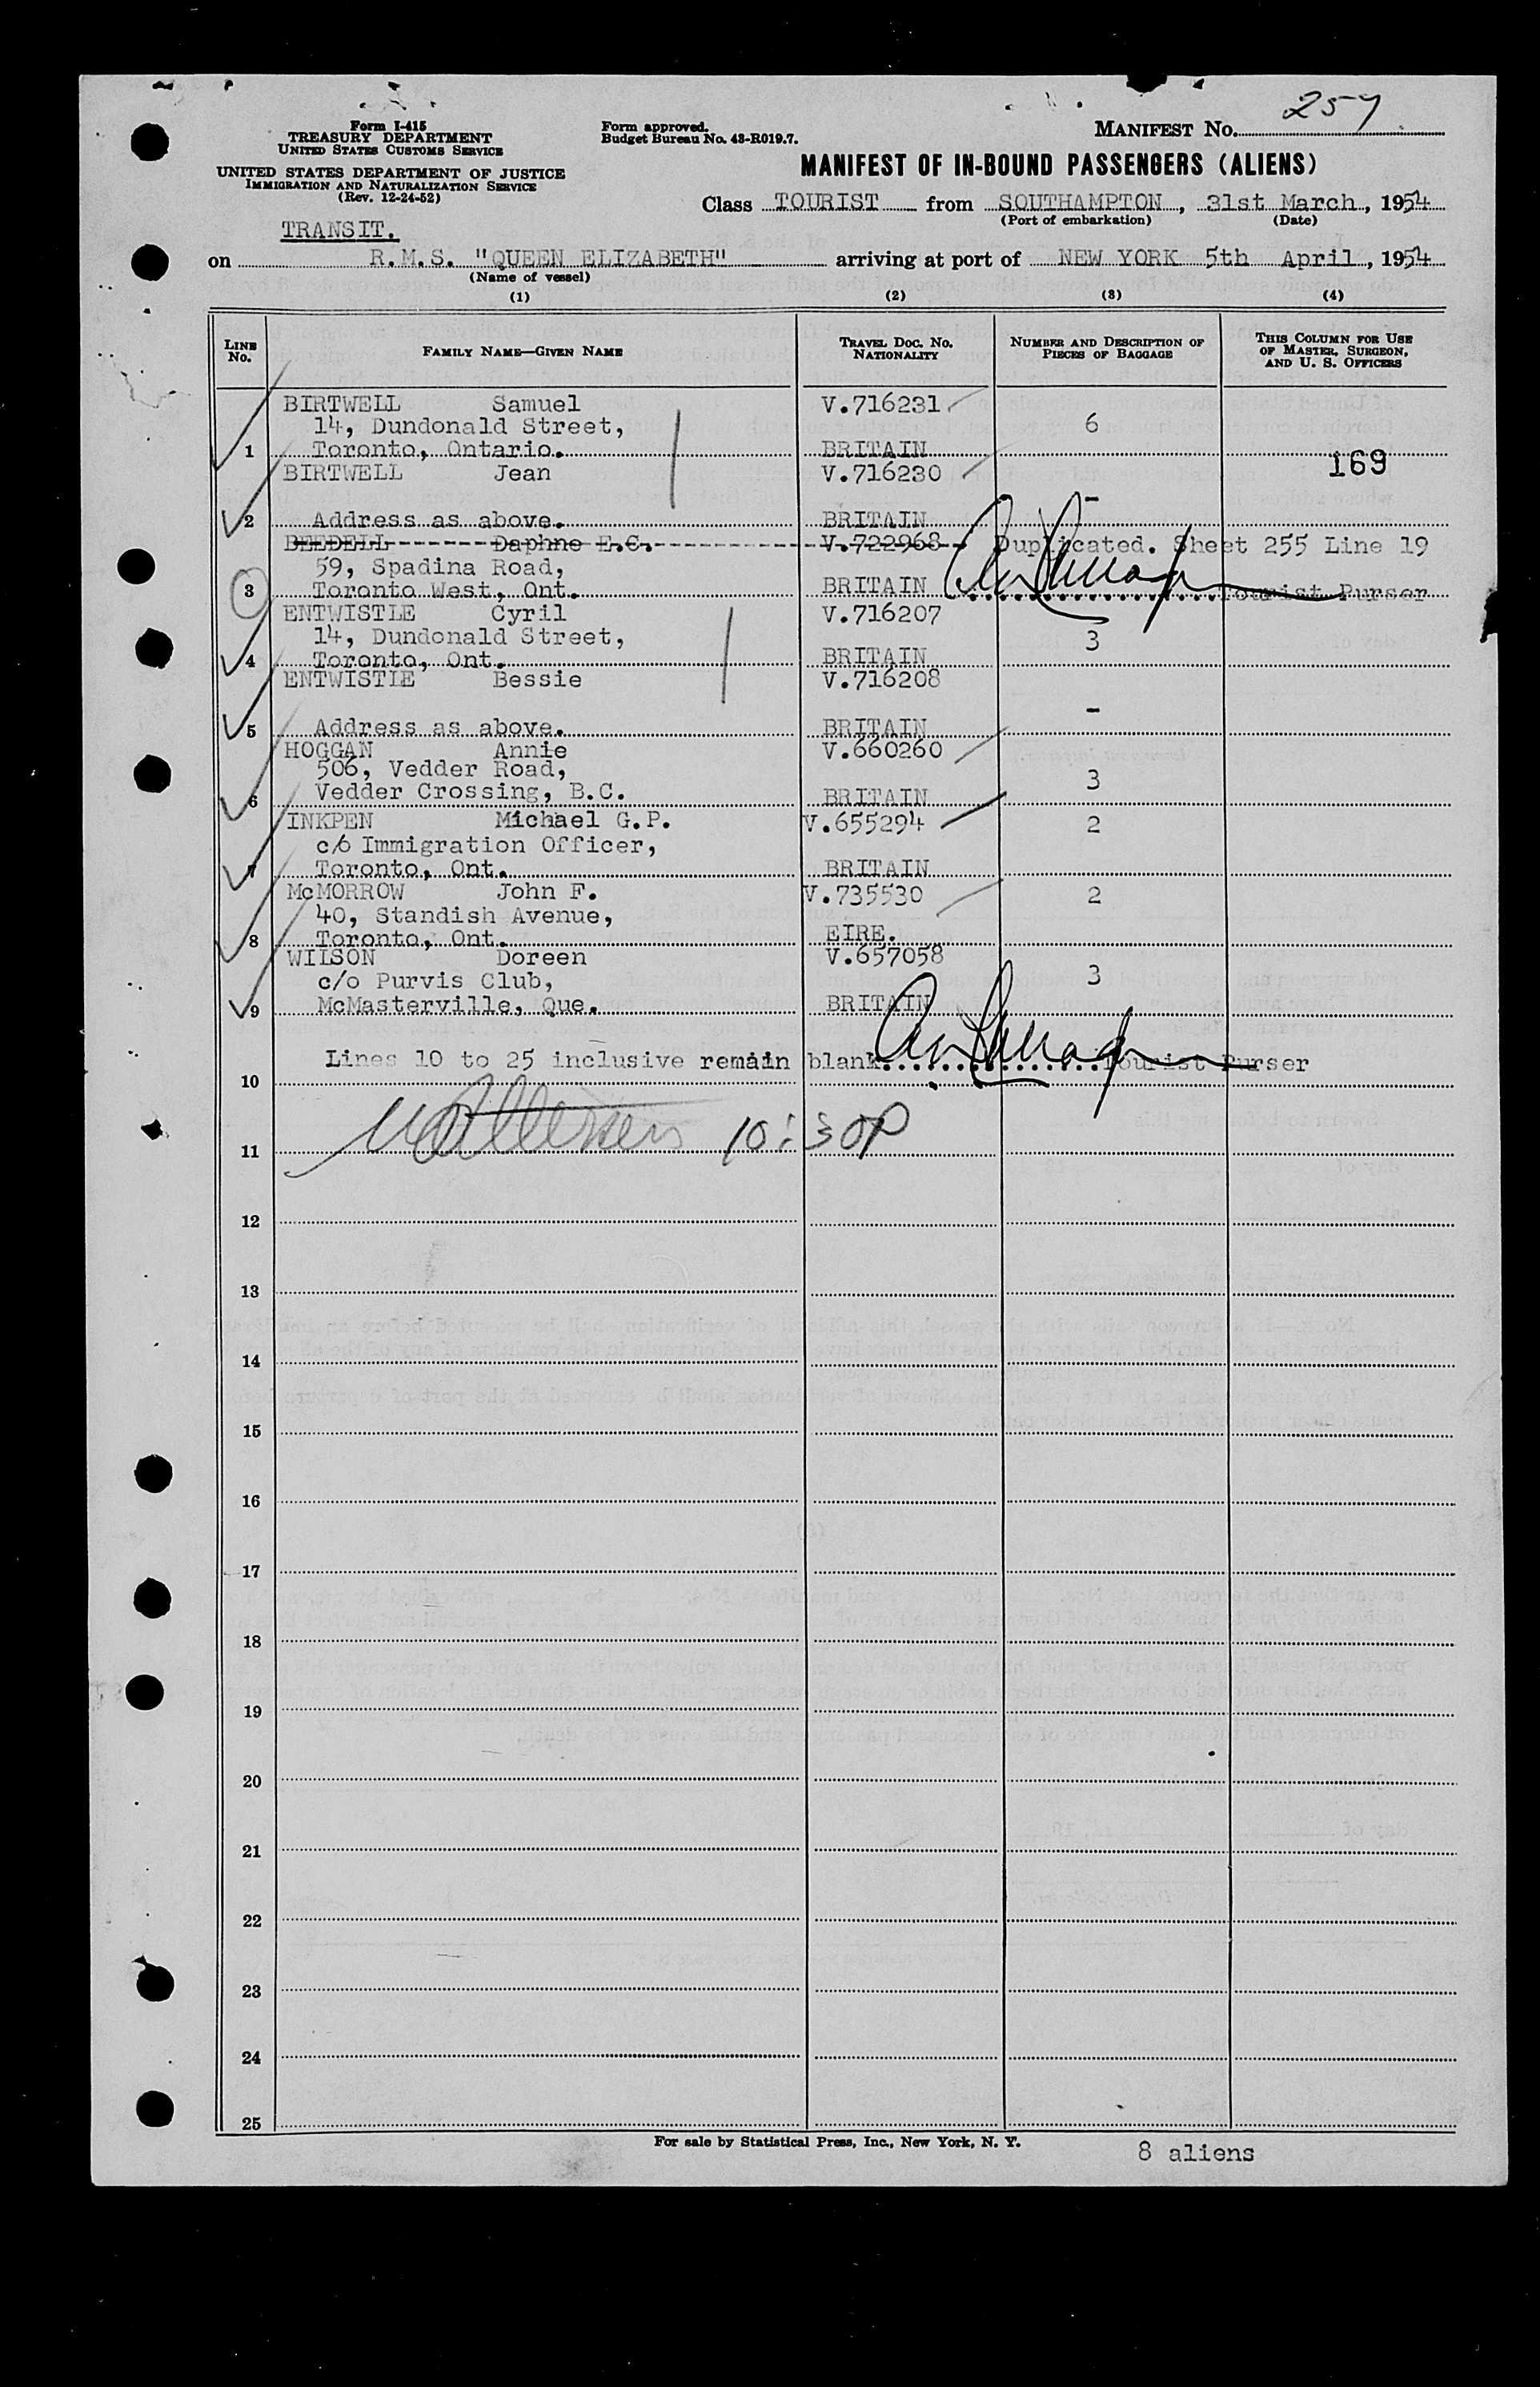 Form I-415
TREASURY DEPARTMENT
UNITED STATES CUSTOMS SERVICE
UNITED STATES DEPARTMENT OF JUSTICE
IMMIGRATION AND NATURALIZATION SERVICE
(Rev. 12-24-52)
Form approved.
Budget Bureau No. 43-R019.7.
MANIFEST No. 257
MANIFEST OF IN-BOUND PASSENGERS (ALIENS)
Class TOURIST from SOUTHAMPTON, 31st March, 1954
(Port of embarkation) (Date)
TRANSIT.
on R.M.S. "QUEEN ELIZABETH" arriving at port of NEW YORK 5th April, 1954
(Name of vessel)
(1) (2) (3) (4)
LINE No. FAMILY NAME—GIVEN NAME TRAVEL DOC. NO. NATIONALITY NUMBER AND DESCRIPTION OF PIECES OF BAGGAGE THIS COLUMN FOR USE OF MASTER, SURGEON, AND U. S. OFFICERS
BIRTWELL Samuel V.716231
14, Dundonald Street, 6
1 Toronto, Ontario. BRITAIN
BIRTWELL Jean V.716230 169
-
2 Address as above. BRITAIN
BEEDELL Daphne E.C. V.722968 Duplicated. Sheet 255 Line 19
59, Spadina Road,
3 Toronto West, Ont. BRITAIN Tourist Purser
ENTWISTLE Cyril V.716207
14, Dundonald Street, 3
4 Toronto, Ont. BRITAIN
ENTWISTLE Bessie V.716208
-
5 Address as above. BRITAIN
HOGGAN Annie V.660260
506, Vedder Road, 3
6 Vedder Crossing, B.C. BRITAIN
INKPEN Michael G.P. V.655294 2
c/o Immigration Officer,
7 Toronto, Ont. BRITAIN
McMORROW John F. V.735530 2
40, Standish Avenue,
8 Toronto, Ont. EIRE.
WILSON Doreen V.657058
c/o Purvis Club, 3
9 McMasterville, Que. BRITAIN
Lines 10 to 25 inclusive remain blank Tourist Purser
10
10:30P
11
12
13
14
15
16
17
18
19
20
21
22
23
24
25
For sale by Statistical Press, Inc., New York, N. Y.
8 aliens